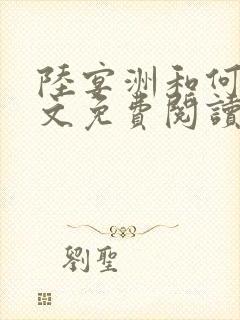 陸宴洲和何
文免費閱讀
劉聖